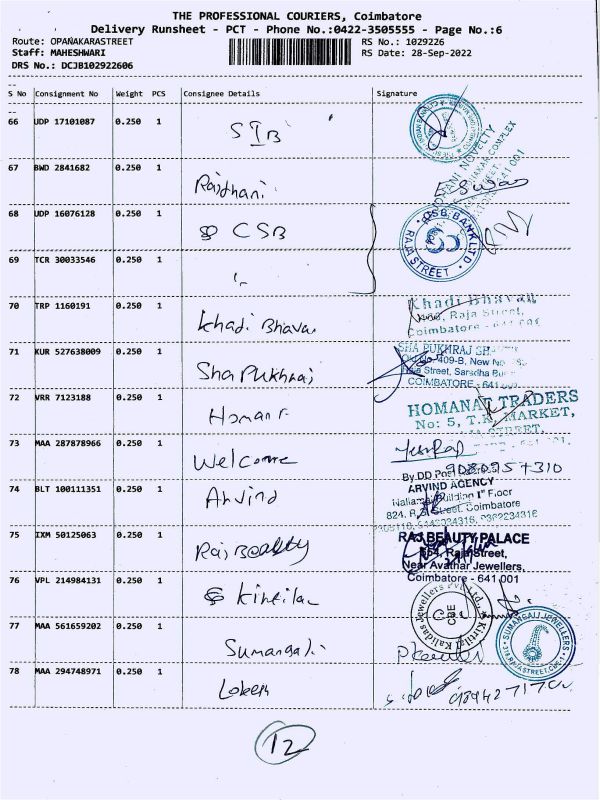 THE PROFESSIONAL COURIERS, Coimbatore
Delivery Runsheet - PCT - Phone No.:0422-3505555 - Page No.:6
Route: OPANAKARASTREET
RS No.: 1029226
Staff: MAHESHWARI
RS Date: 28-Sep-2022
DRS No.: DCJB102922606
S No Consignment No Weight PCS Consignee Details Signature
66 UDP 17101087 0.250 1 SIB
67 BWD 2841682 0.250 1 Rajdhani Eswar
68 UDP 16076128 0.250 1 CSB
CSB BANK LTD
RAJA STREET
69 TCR 30033546 0.250 1
70 TRP 1160191 0.250 1 Khadi Bhavan
Khadi Bhavan
Raja Street,
Coimbatore -
71 KUR 527638009 0.250 1 Sha Pukhraj
SHA PUKHRAJ
409-B, New No
Raja Street, Saradha
COIMBATORE - 641
72 VRR 7123188 0.250 1 Homan
HOMANAT TRADERS
No: 5, T.K. MARKET,
STREET,
73 MAA 287878966 0.250 1 Welcome
74 BLT 100111351 0.250 1 Arvind
By DD Post
ARVIND AGENCY
Building 1st Floor
824, Raja Street, Coimbatore
75 IXM 50125063 0.250 1 Raj Beauty
RAJ BEAUTY PALACE
554, Raja Street,
Near Avathar Jewellers,
Coimbatore - 641 001
76 VPL 214984131 0.250 1 Kirtilal
Kirtilal Kalidas Jewellers Pvt. Ltd.,
CBE
77 MAA 561659202 0.250 1 Sumangali
SUMANGALI JEWELLERS
RAJA STREET, CBE-1
78 MAA 294748971 0.250 1 Lokesh
12